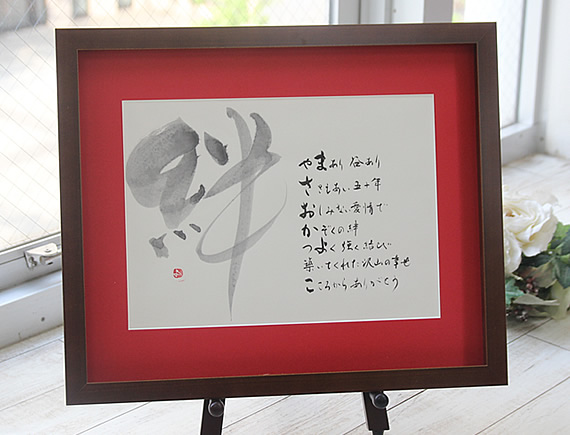 絆
やまあり 谷あり
ささえあい 五十年
おしみない愛情で
かぞくの絆
つよく 強く 結び
築いてくれた沢山の幸せ
こころから ありがとう